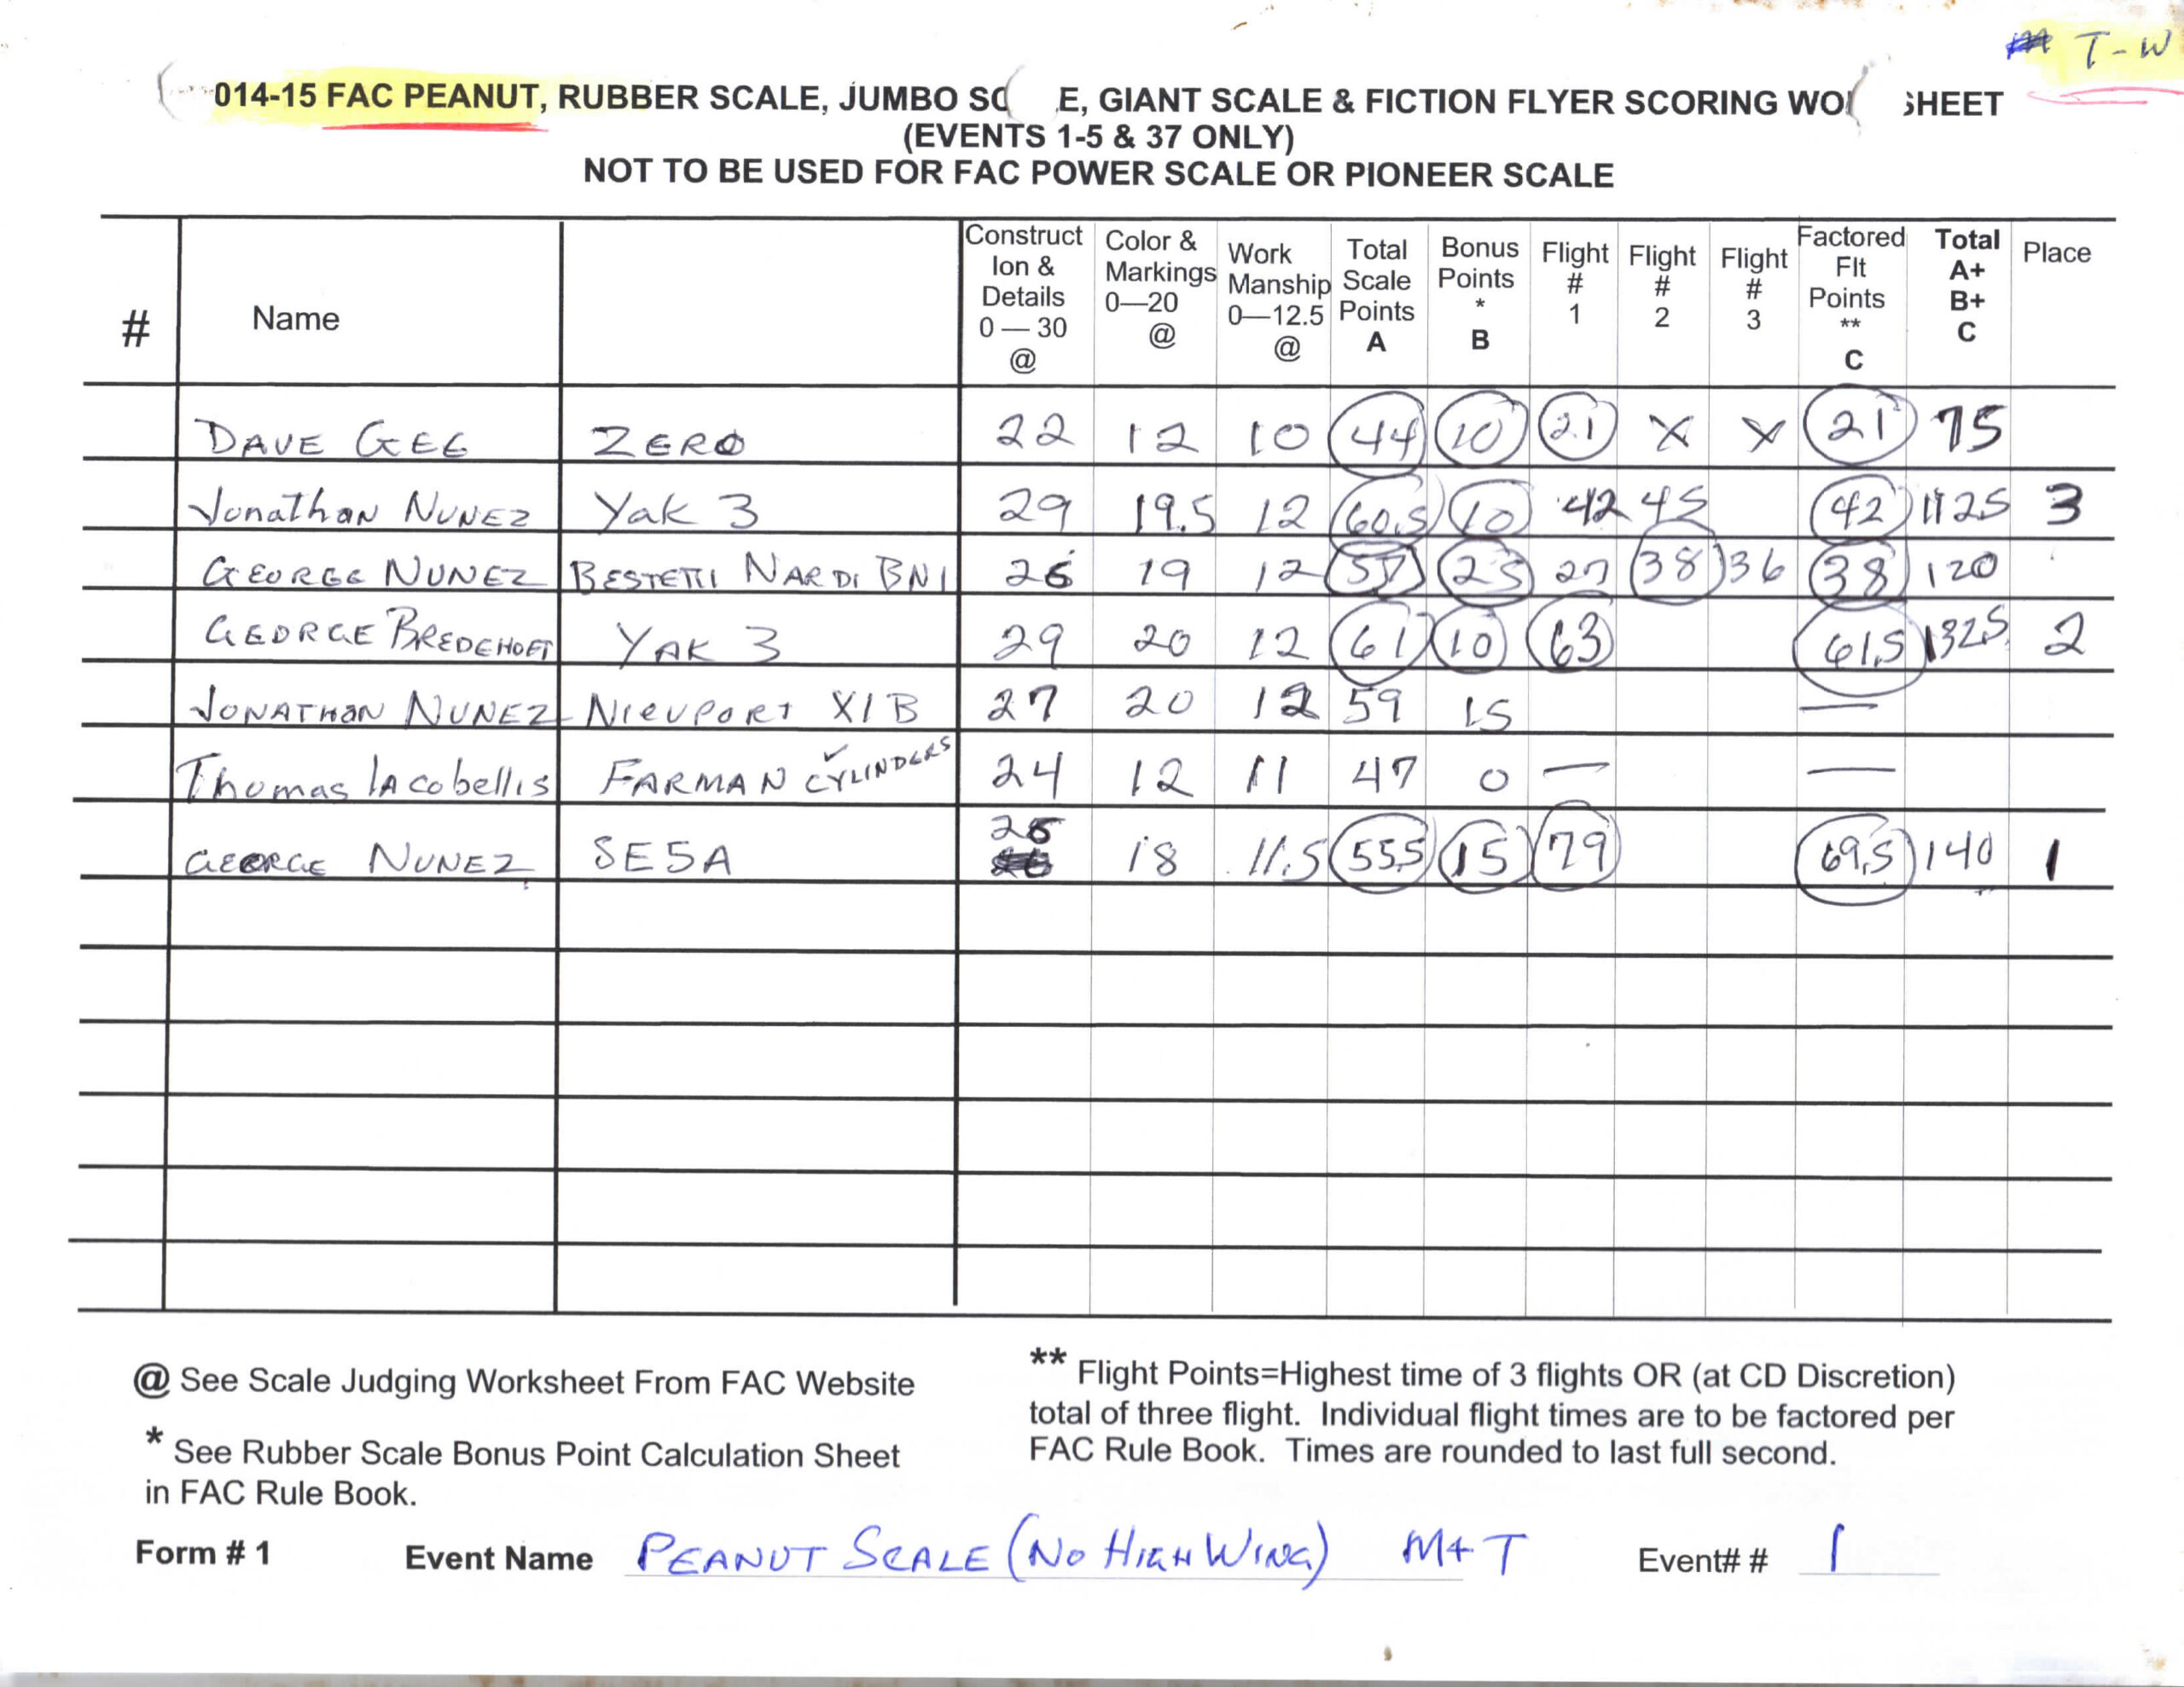 T-W
014-15 FAC PEANUT, RUBBER SCALE, JUMBO SC E, GIANT SCALE & FICTION FLYER SCORING WO SHEET
(EVENTS 1-5 & 37 ONLY)
NOT TO BE USED FOR FAC POWER SCALE OR PIONEER SCALE
# Name Construct Ion & Details 0 — 30 @ Color & Markings 0—20 @ Work Manship 0—12.5 @ Total Scale Points A Bonus Points * B Flight # 1 Flight # 2 Flight # 3 Factored Flt Points ** C Total A+ B+ C Place
DAVE GEE ZERO 22 12 10 44 10 21 X X 21 75
Jonathan NUNEZ Yak 3 29 19.5 12 60.5 10 42 45 42 112.5 3
GEORGE NUNEZ BESTETTI NARDI BN1 26 19 12 57 25 27 38 36 38 120
GEORGE BREDEHOFT YAK 3 29 20 12 61 10 63 61.5 132.5 2
JONATHAN NUNEZ NIEUPORT XIB 27 20 12 59 15 —
Thomas IAcobellis FARMAN CYLINDERS ✓ 24 12 11 47 0 — —
GEORGE NUNEZ SE5A 26 18 11.5 55.5 15 79 69.5 140 1
@ See Scale Judging Worksheet From FAC Website
* See Rubber Scale Bonus Point Calculation Sheet
in FAC Rule Book.
** Flight Points=Highest time of 3 flights OR (at CD Discretion)
total of three flight. Individual flight times are to be factored per
FAC Rule Book. Times are rounded to last full second.
Form # 1 Event Name PEANUT SCALE (NO HIGH WING) M+T Event# # 1